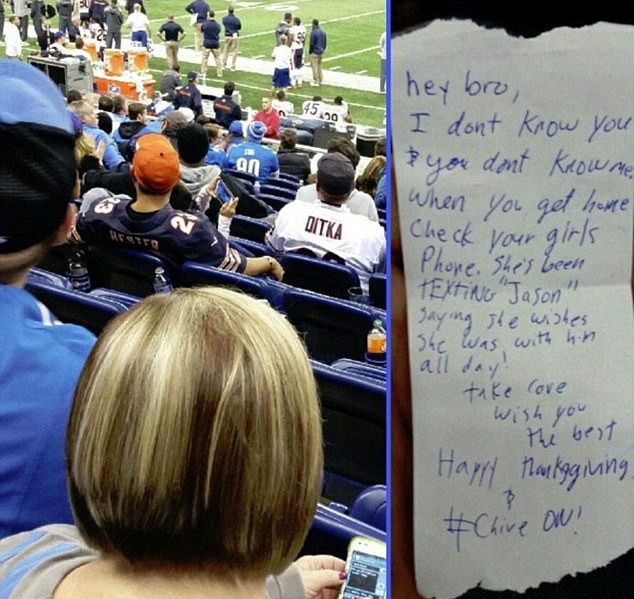 45
90
HESTER
23
DITKA
hey bro,
I dont know you
& you dont know me,
when you get home
Check your girls
Phone. She's been
TEXTING "Jason"
Saying she wishes
She was with him
all day!
take care
wish you
the best
Happy thanksgiving
&
#Chive ON!